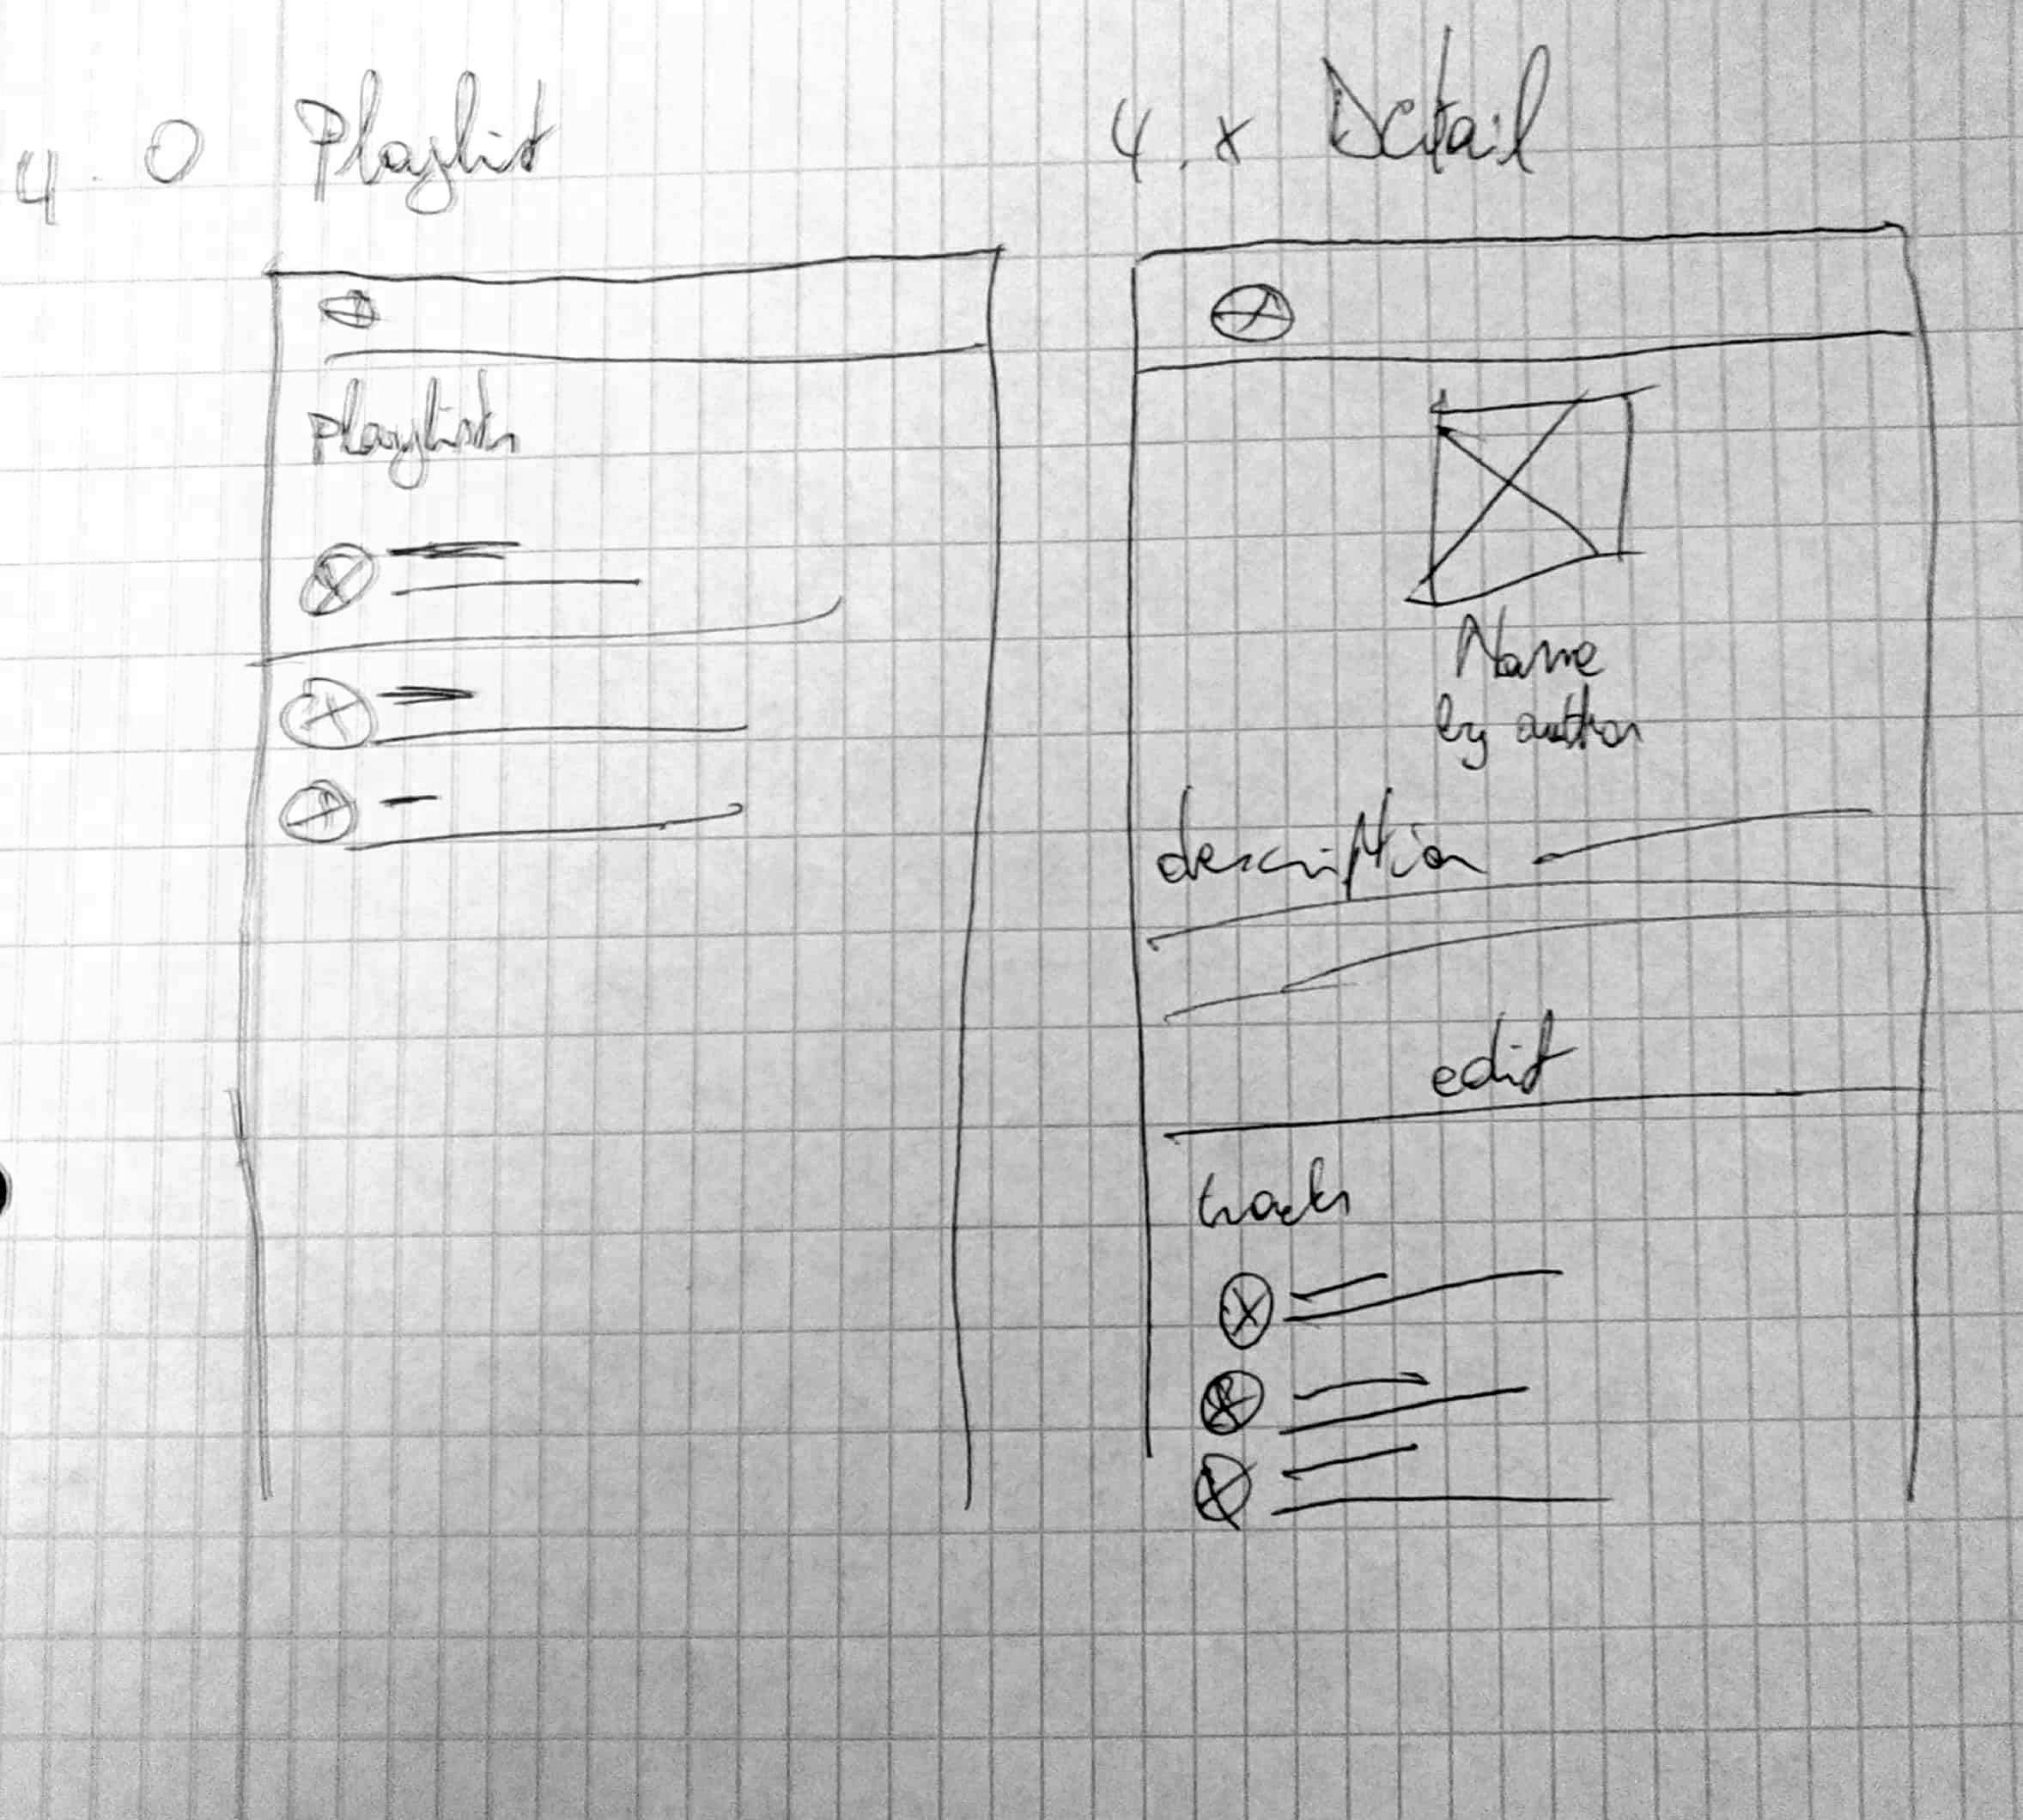 4.0 Playlist
playlists
4.x Detail
Name
by author
description
edit
tracks